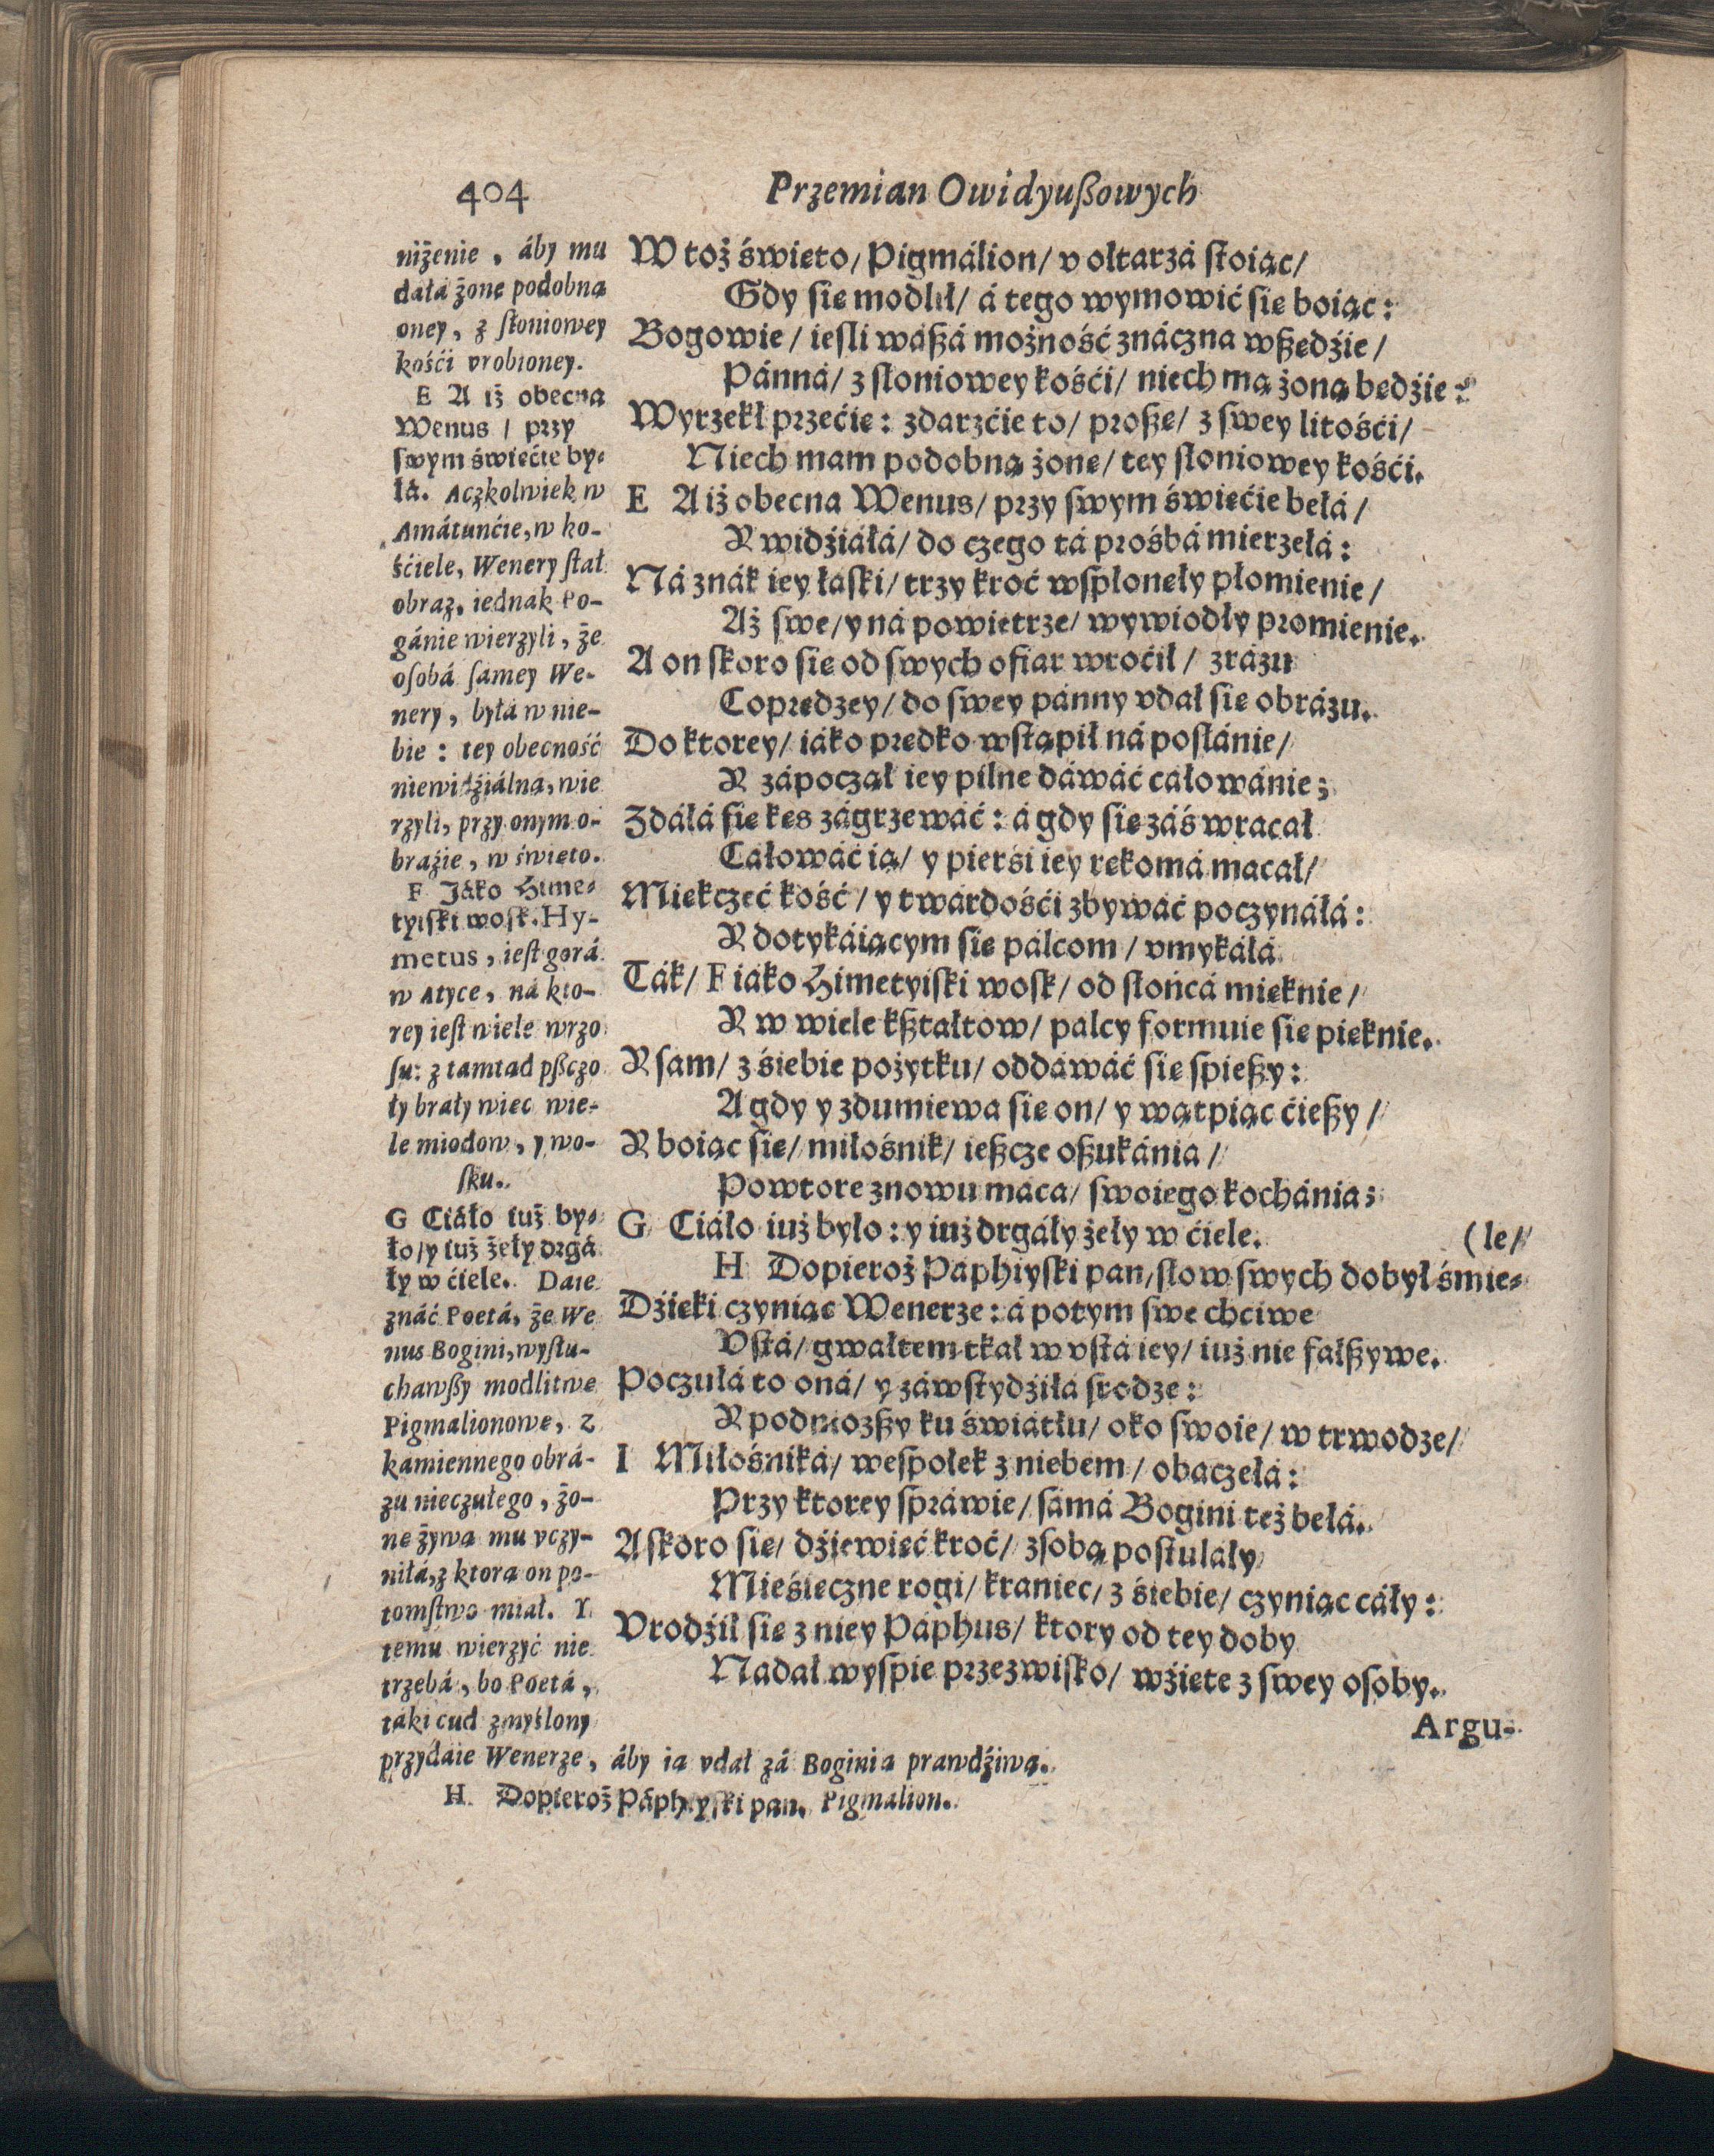 404
Przemian Owidyußowych
niżenie, áby mu
dałá żonę podobną
oney, z słoniowey
kośći vrobioney.
E A iż obecna
Wenus / przy
swym świećie by-
łá. Aczkolwiek w
Amátunćie, w ko-
śćiele, Wenery stał
obraz, iednák Po-
gánie wierzyli, że
osobá samey We-
nery, byłá w nie-
bie: tey obecność
niewidźiálną, wie
rzyli, przy onym o-
braźie, w święto.
F Jáko Hime-
tyiski wosk. Hy-
metus, iest gorá
w Atyce, ná kto-
rey iest wiele wrzo
su: z tamtad pßczo
ły brały wiec wie-
le miodow, y wo-
sku.
G Ciáło iuż by-
ło / y iuż żeły drgá
ły w ćiele. Daie
znáć Poetá, że We
nus Bogini, wysłu-
chawßy modlitwe
Pigmalionowe, z
kamiennego obrá-
zu nieczułego, żo-
ne żywą mu vczy-
niłá, z ktora on po-
tomstwo miał. Y
temu wierzyć nie
trzebá, bo Poetá,
táki cud zmyślony
przydáie Wenerze, áby ia vdał zá Boginia prawdźiwą.
H Dopieroż Páphiyski pan. Pigmalion.
W toż święto / Pigmálion / v ołtarzá stoiąc /
Gdy sie modlił / á tego wymowić sie boiąc:
Bogowie / iesli wáßá możność znáczna wßedźie /
Pánná / z słoniowey kośći / niech mą żoną będźie:
Wyrzekł przećie: zdarzćie to / proßę / z swey litośći /
Niech mam podobną żonę / tey słoniowey kośći.
E A iż obecna Wenus / przy swym świećie bełá /
Y widźiáłá / do czego tá prośbá mierzełá:
Ná znák iey łaski / trzy kroć wspłoneły płomienie /
Aż swe / y ná powietrze / wywiodły promienie.
A on skoro sie od swych ofiar wroćił / zrázu
Coprędzey / do swey pánny vdał sie obrázu.
Do ktorey / iáko prędko wstąpił ná posłánie /
Y zápoczął iey pilne dáwáć cáłowánie;
Zdáłá sie kęs zágrzewáć: á gdy sie záś wracał
Cáłowáć ią / y pierśi iey rękomá macał /
Miękczeć kość / y twárdośći zbywáć poczynáłá:
Y dotykáiącym sie pálcom / vmykáłá
Ták / F iáko Himetyiski wosk / od słońcá mięknie /
Y w wiele kßtałtow / palcy formuie sie pięknie.
Y sam / z śiebie pożytku / oddáwáć sie spießy:
A gdy y zdumiewa sie on / y wątpiąc ćießy /
Y boiąc sie / miłośnik / ießcze oßukánia /
Powtore znowu maca / swoiego kochánia;
G Ciáło iuż było: y iuż drgáły żeły w ćiele. (le /
H Dopieroż Páphiyski pan / słow swych dobył śmie-
Dźięki czyniąc Wenerze: á potym swe chciwe
Vstá / gwałtem tkał w vstá iey / iuż nie fałßywe.
Poczułá to oná / y záwstydźiłá srodze:
Y podniozßy ku świátłu / oko swoie / w trwodze /
I Miłośniká / wespołek z niebem / obaczełá:
Przy ktorey spráwie / sámá Bogini też bełá.
A skoro sie / dźiewięć kroć / z sobą postuláły
Mieśięczne rogi / kraniec / z śiebie / czyniąc cáły:
Vrodźił sie z niey Páphus / ktory od tey doby
Nadał wyspie przezwisko / wźięte z swey osoby.
Argu-